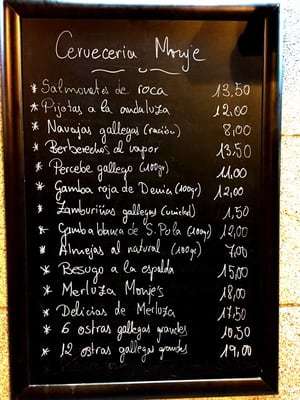 Cerveceria Monje
* Salmonetes de roca 13,50
* Pijotas a la andaluza 12,00
* Navajas gallegas (ración) 8,00
* Berberechos al vapor 13,50
* Percebe gallego (100gr) 11,00
* Gamba roja de Denia (100gr) 12,00
* Zamburiñas gallegas (unidad) 1,50
* Gamba blanca de S. Pola (100gr) 12,00
* Almejas al natural (100gr) 7,00
* Besugo a la espalda 15,00
* Merluza Monje's 18,00
* Delicias de Merluza 17,50
* 6 ostras gallegas grandes 10,50
* 12 ostras gallegas grandes 19,00